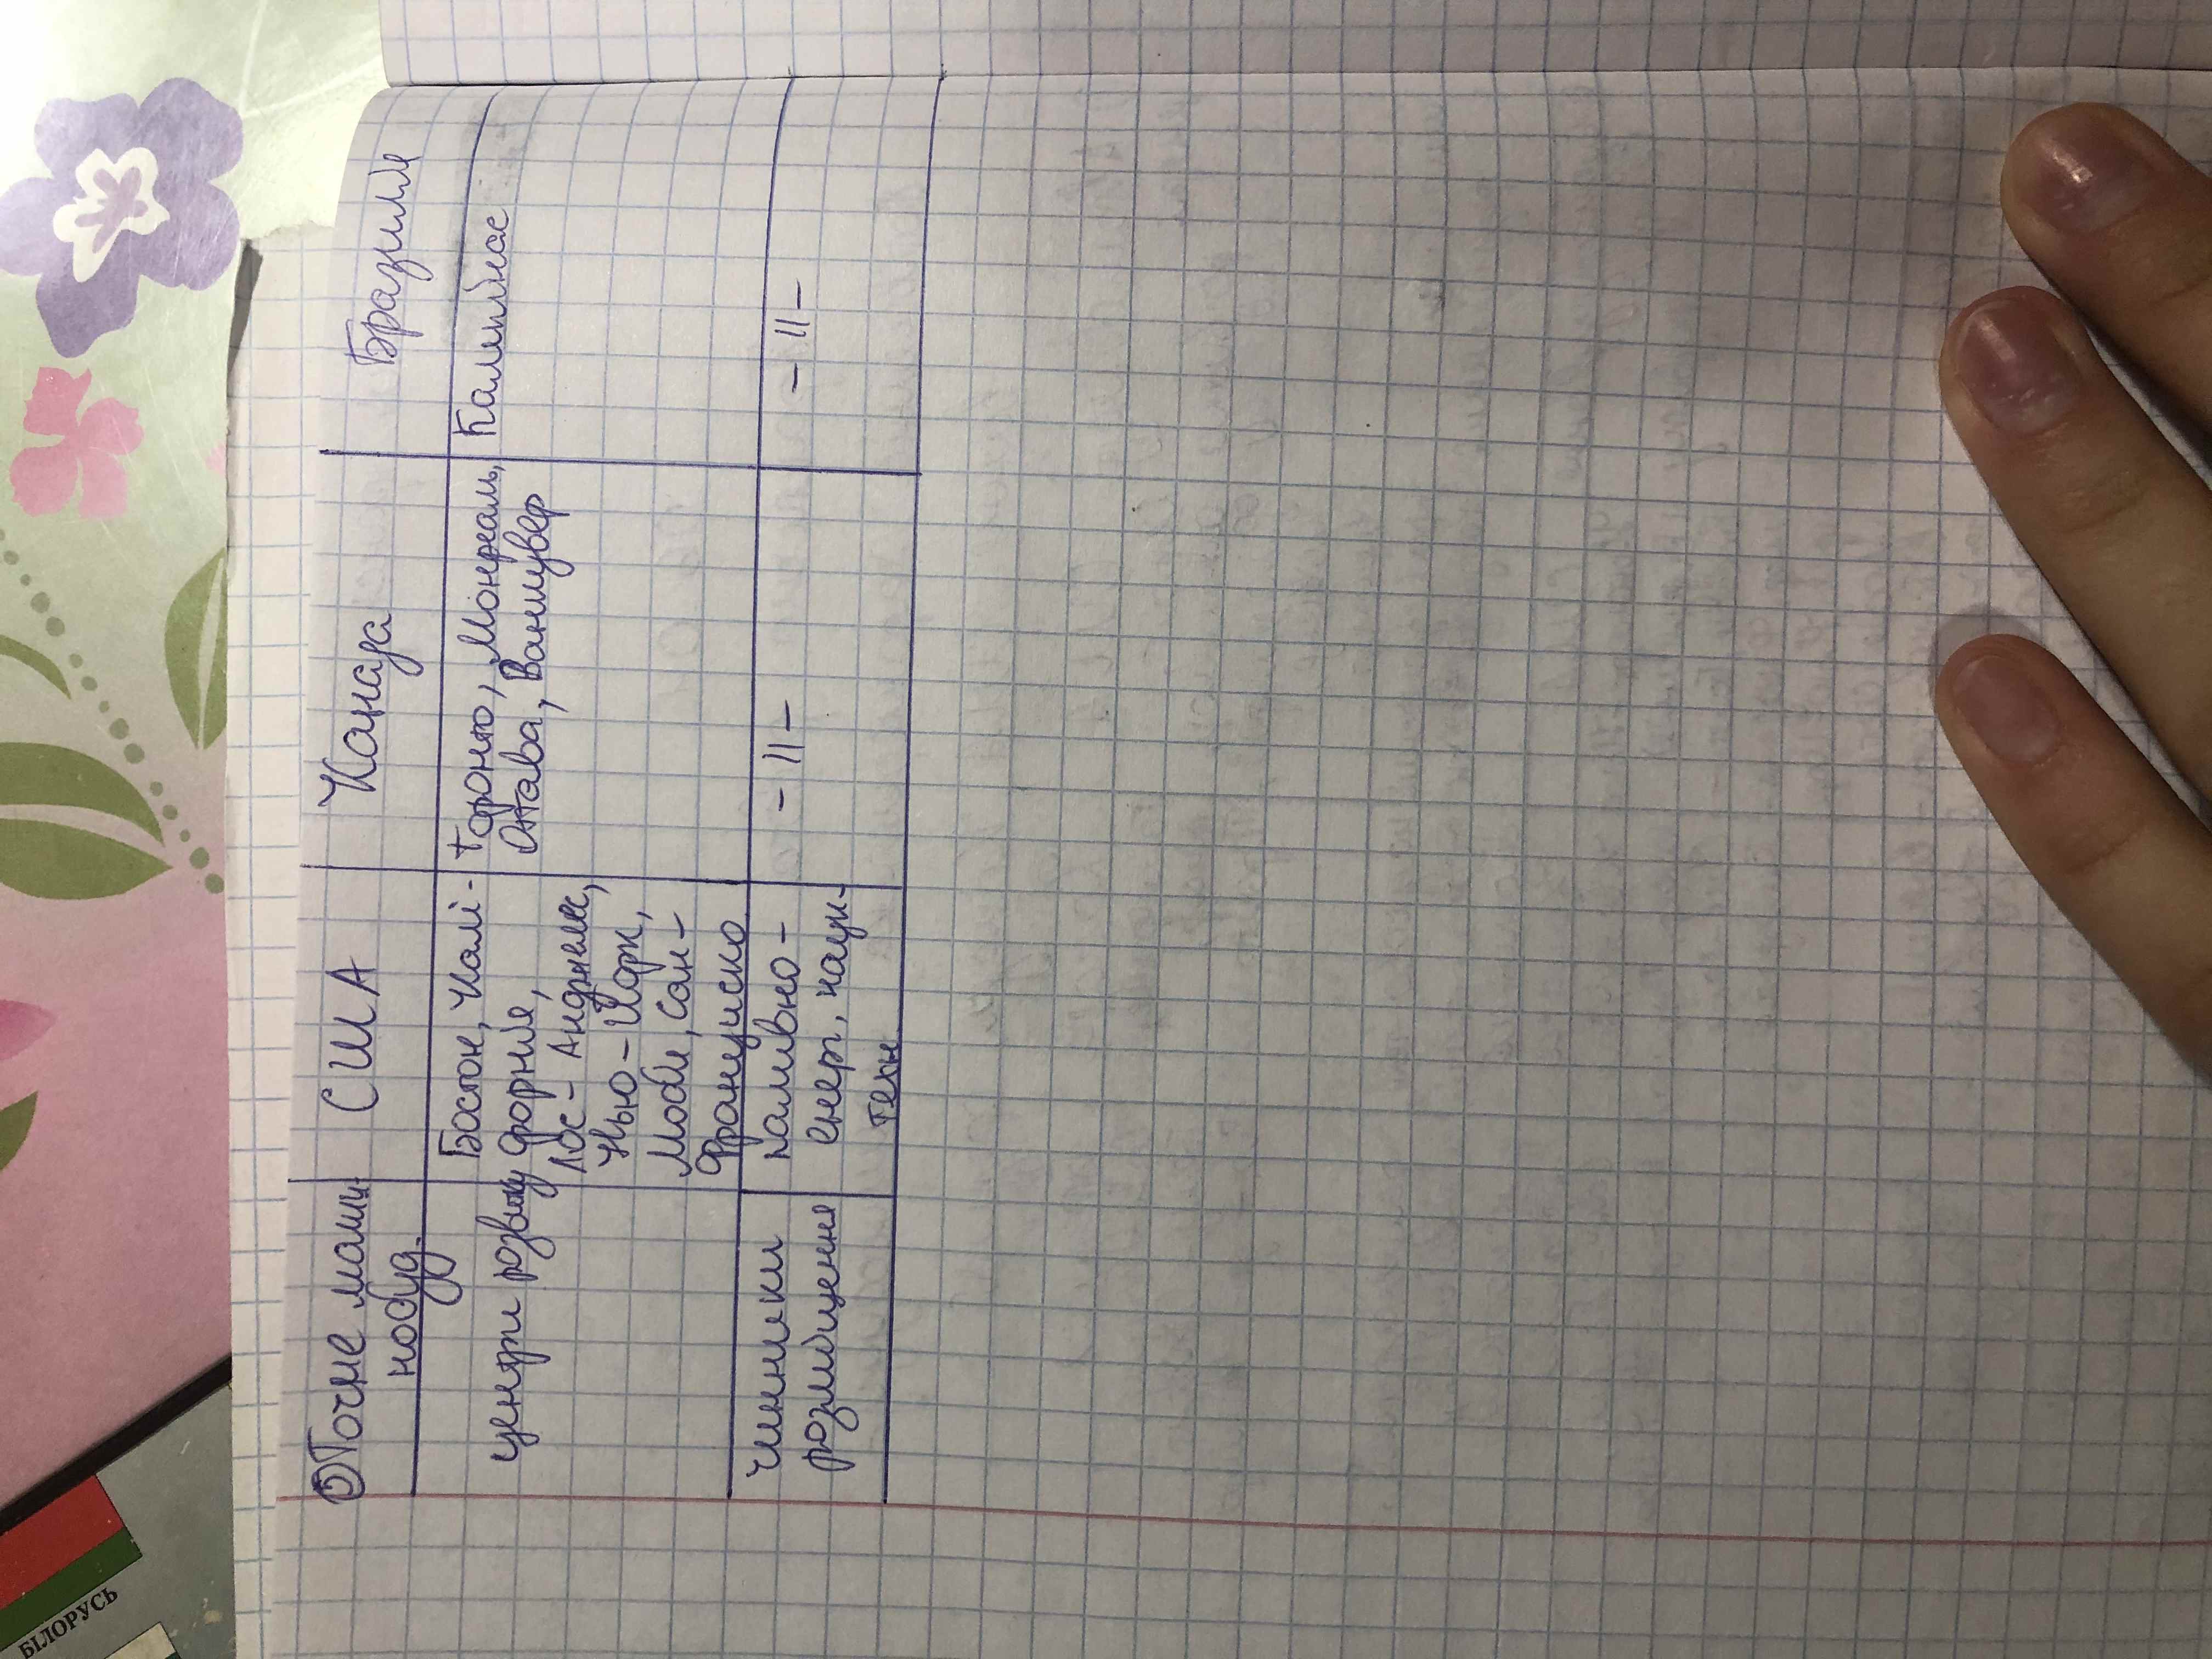 ⑤ Точне маши-
нобуд.
США
Канада
Бразилія
центри розвитку
Бостон, Калі-
форнія,
Лос-Анджелес,
Нью-Йорк,
Мобіл, Сан-
Франциско
Торонто, Монреаль,
Отава, Ванкувер
Кампінас
чинники
розміщення
паливно-
енерг., наук-
техн
-II-
-II-
БІЛОРУСЬ